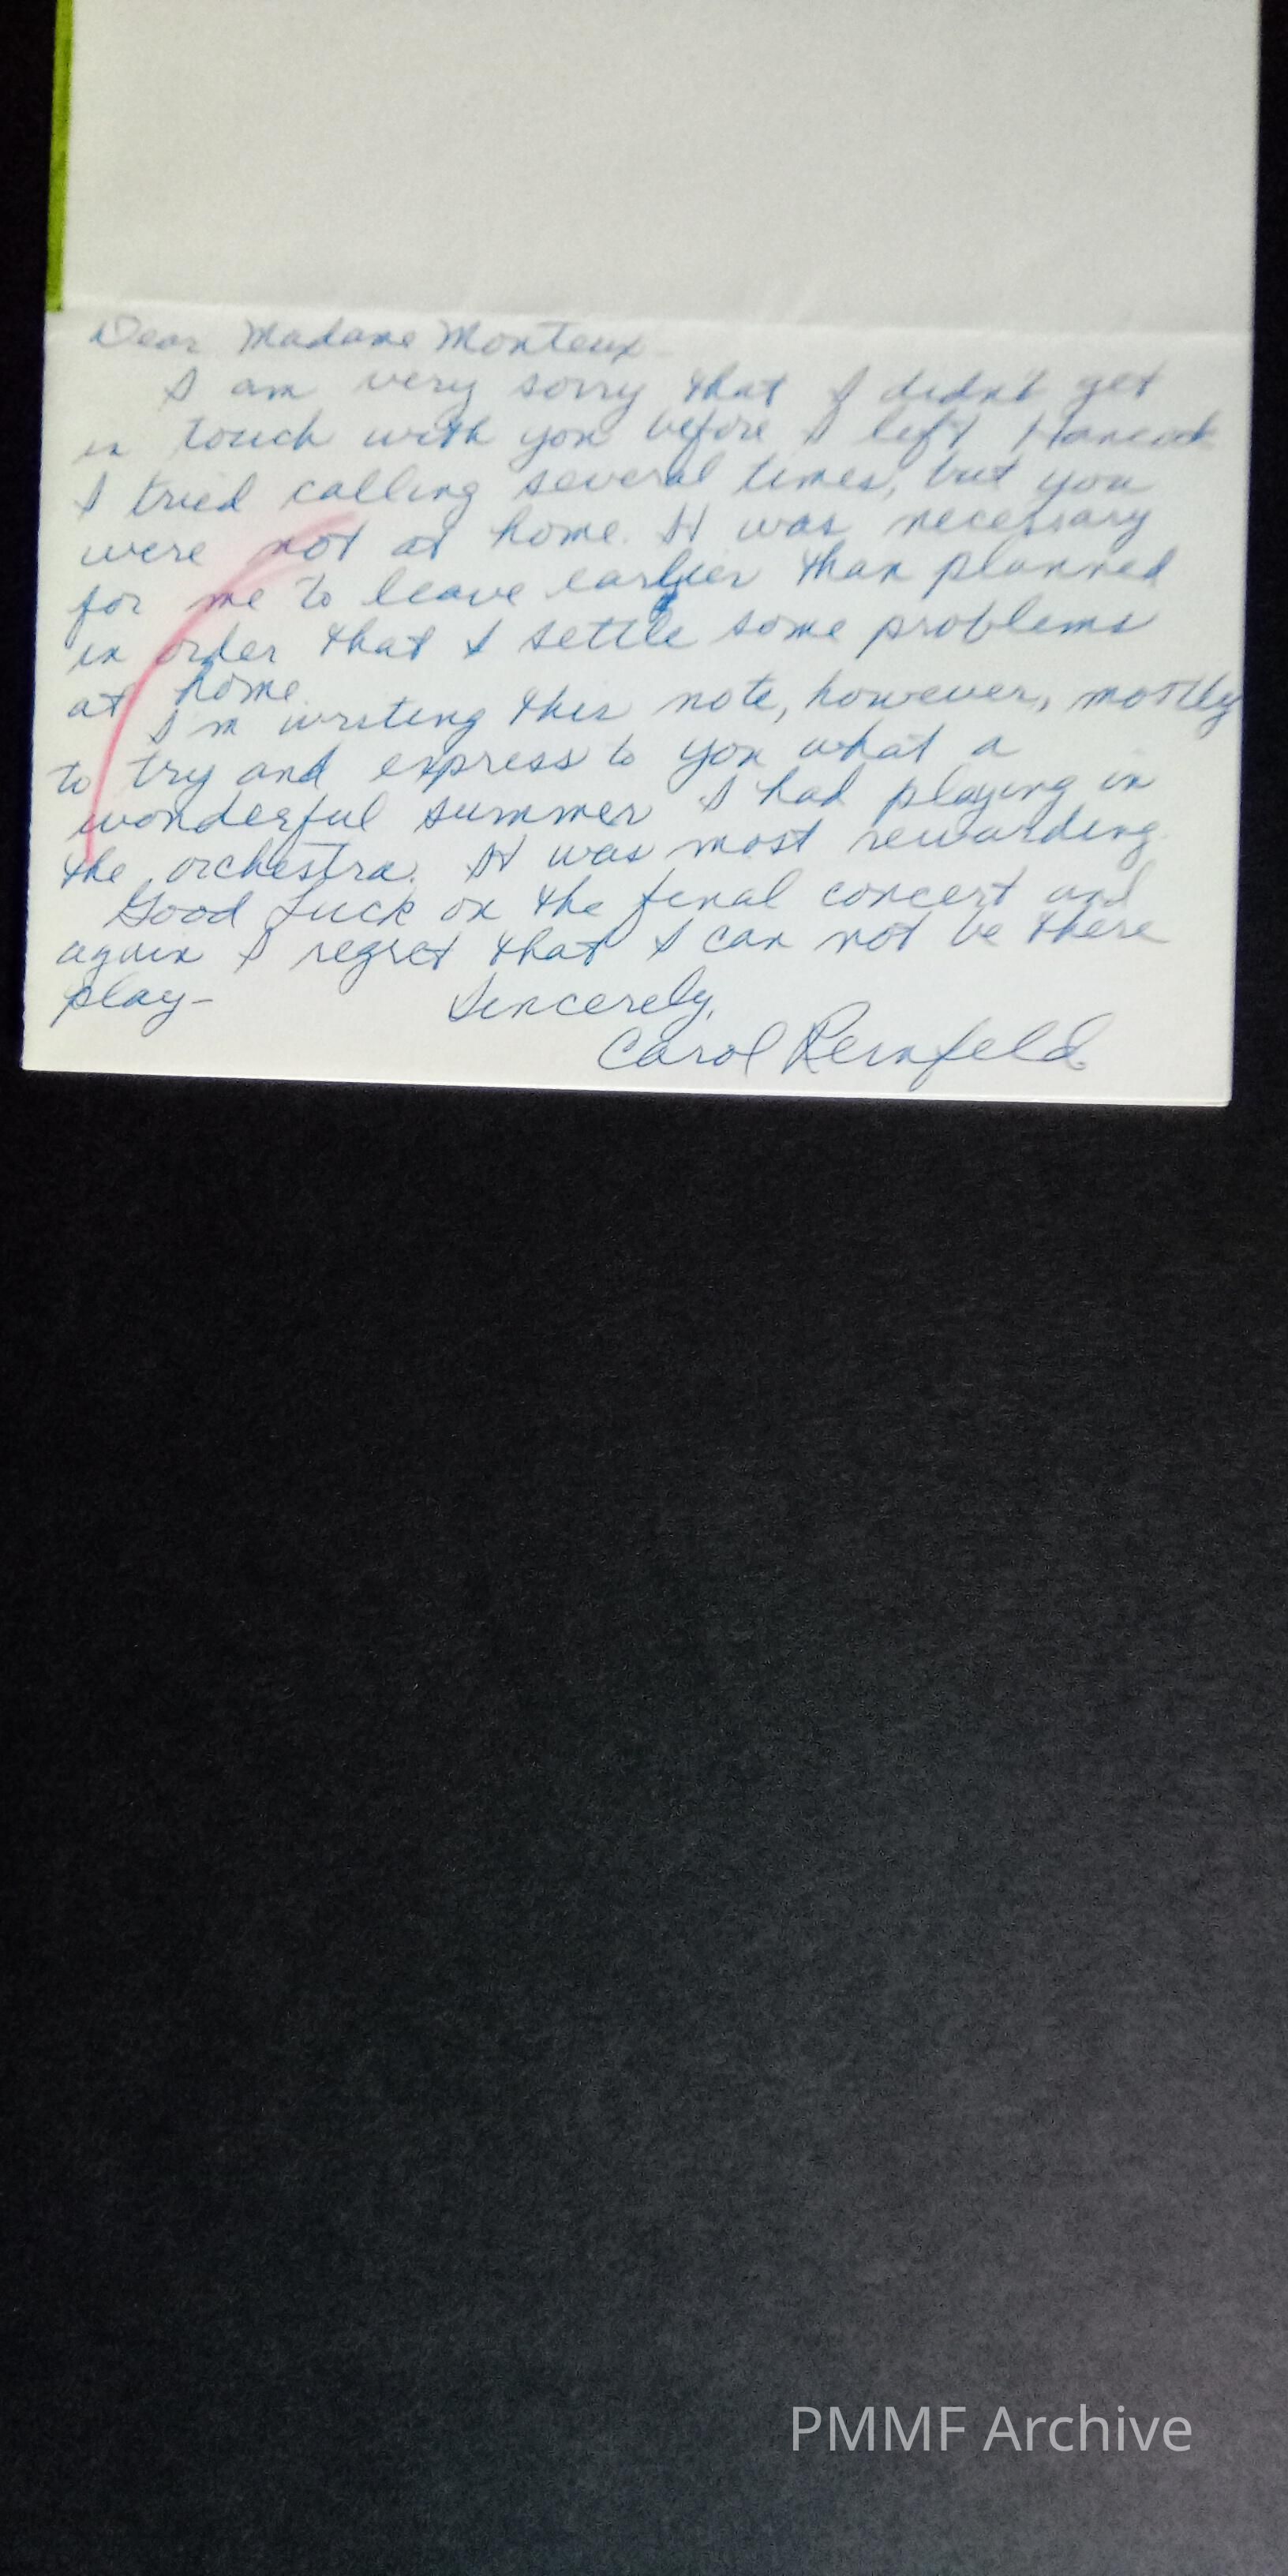 Dear Madame Monteux -
I am very sorry that I didn't get
in touch with you before I left Hancock
I tried calling several times, but you
were not at home. It was necessary
for me to leave earlier than planned
in order that I settle some problems
at home.
I'm writing this note, however, mostly
to try and express to you what a
wonderful summer I had playing in
the orchestra. It was most rewarding.
Good Luck on the final concert and
again I regret that I can not be there
play-
Sincerely,
Carol
PMMF Archive